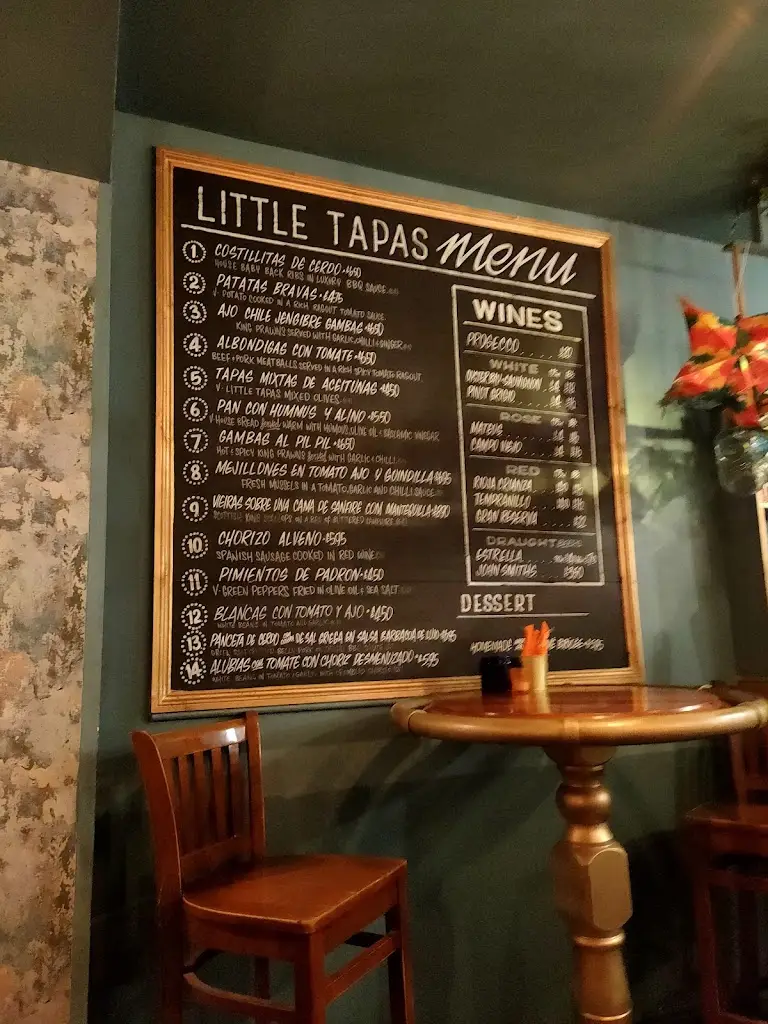 LITTLE TAPAS menu
1 COSTILLITAS DE CERDO • £650
HOUSE BABY BACK RIBS IN LUXURY BBQ SAUCE
2 PATATAS BRAVAS • £475
V. POTATO COOKED IN A RICH RAGOUT TOMATO SAUCE
3 AJO CHILE JENGIBRE GAMBAS • £650
KING PRAWNS SERVED WITH GARLIC, CHILLI + GINGER
4 ALBONDIGAS CON TOMATE • £650
BEEF + PORK MEATBALLS SERVED IN A RICH SPICY TOMATO RAGOUT
5 TAPAS MIXTAS DE ACEITUNAS • £450
V. LITTLE TAPAS MIXED OLIVES
6 PAN CON HUMMUS Y ALINO • £550
V. HOUSE BREAD served WARM WITH HUMOUS, OLIVE OIL + BALSAMIC VINEGAR
7 GAMBAS AL PIL PIL • £650
HOT + SPICY KING PRAWNS served WITH GARLIC + CHILLI
8 MEJILLONES EN TOMATO AJO Y GUINDILLA
FRESH MUSSELS IN A TOMATO, GARLIC AND CHILLI SAUCE
9 VIEIRAS SOBRE UNA CAMA DE SANGRE CON MANTEQUILLA
SCOTTISH KING SCALLOPS ON A BED OF BUTTERED
10 CHORIZO ALVENO • £595
SPANISH SAUSAGE COOKED IN RED WINE
11 PIMIENTOS DE PADRON • £450
V. GREEN PEPPERS FRIED IN OLIVE OIL + SEA SALT
12 BLANCAS CON TOMATO Y AJO • £450
WHITE BEANS IN TOMATO AND GARLIC
13 PANCETA DE CERDO DE SAL GRIEGA EN SALSA BARBACOA DE LUJO
14 ALUBIAS con TOMATE CON CHORIZ DESMENUZADO • £595
WHITE BEANS IN TOMATO + GARLIC WITH
WINES
PROSECCO
WHITE
PINOT GRIGIO
ROSE
MATEUS
CAMPO VIEJO
RED
RIOJA CRIANZA
TEMPRANILLO
GRAN RESERVA
DRAUGHT
ESTRELLA
JOHN SMITHS
DESSERT
HOMEMADE